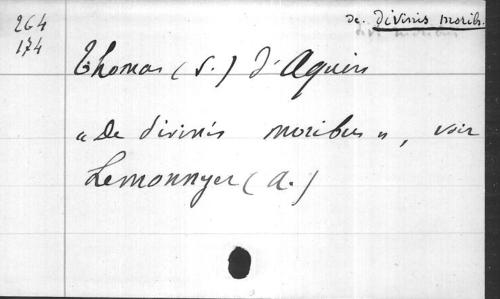 264
174
de divinis morib.
Thomas (S.) d'Aquin
"De divinis moribus", voir
Lemonnyer (A.)